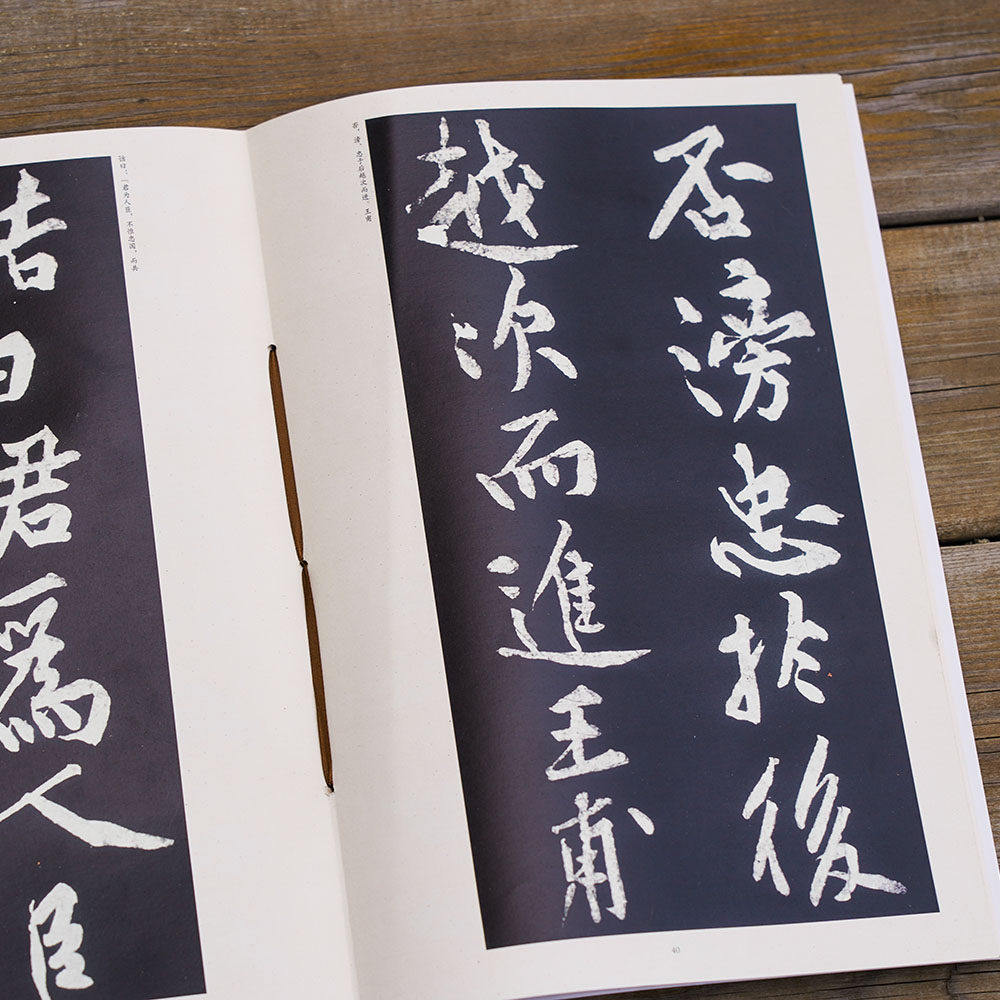 否滂忠扵後
越次而進王甫
否，滂、忠于后越次而进。王甫
40
詰曰君爲人臣
诘曰：“君为人臣，不惟忠国，而共